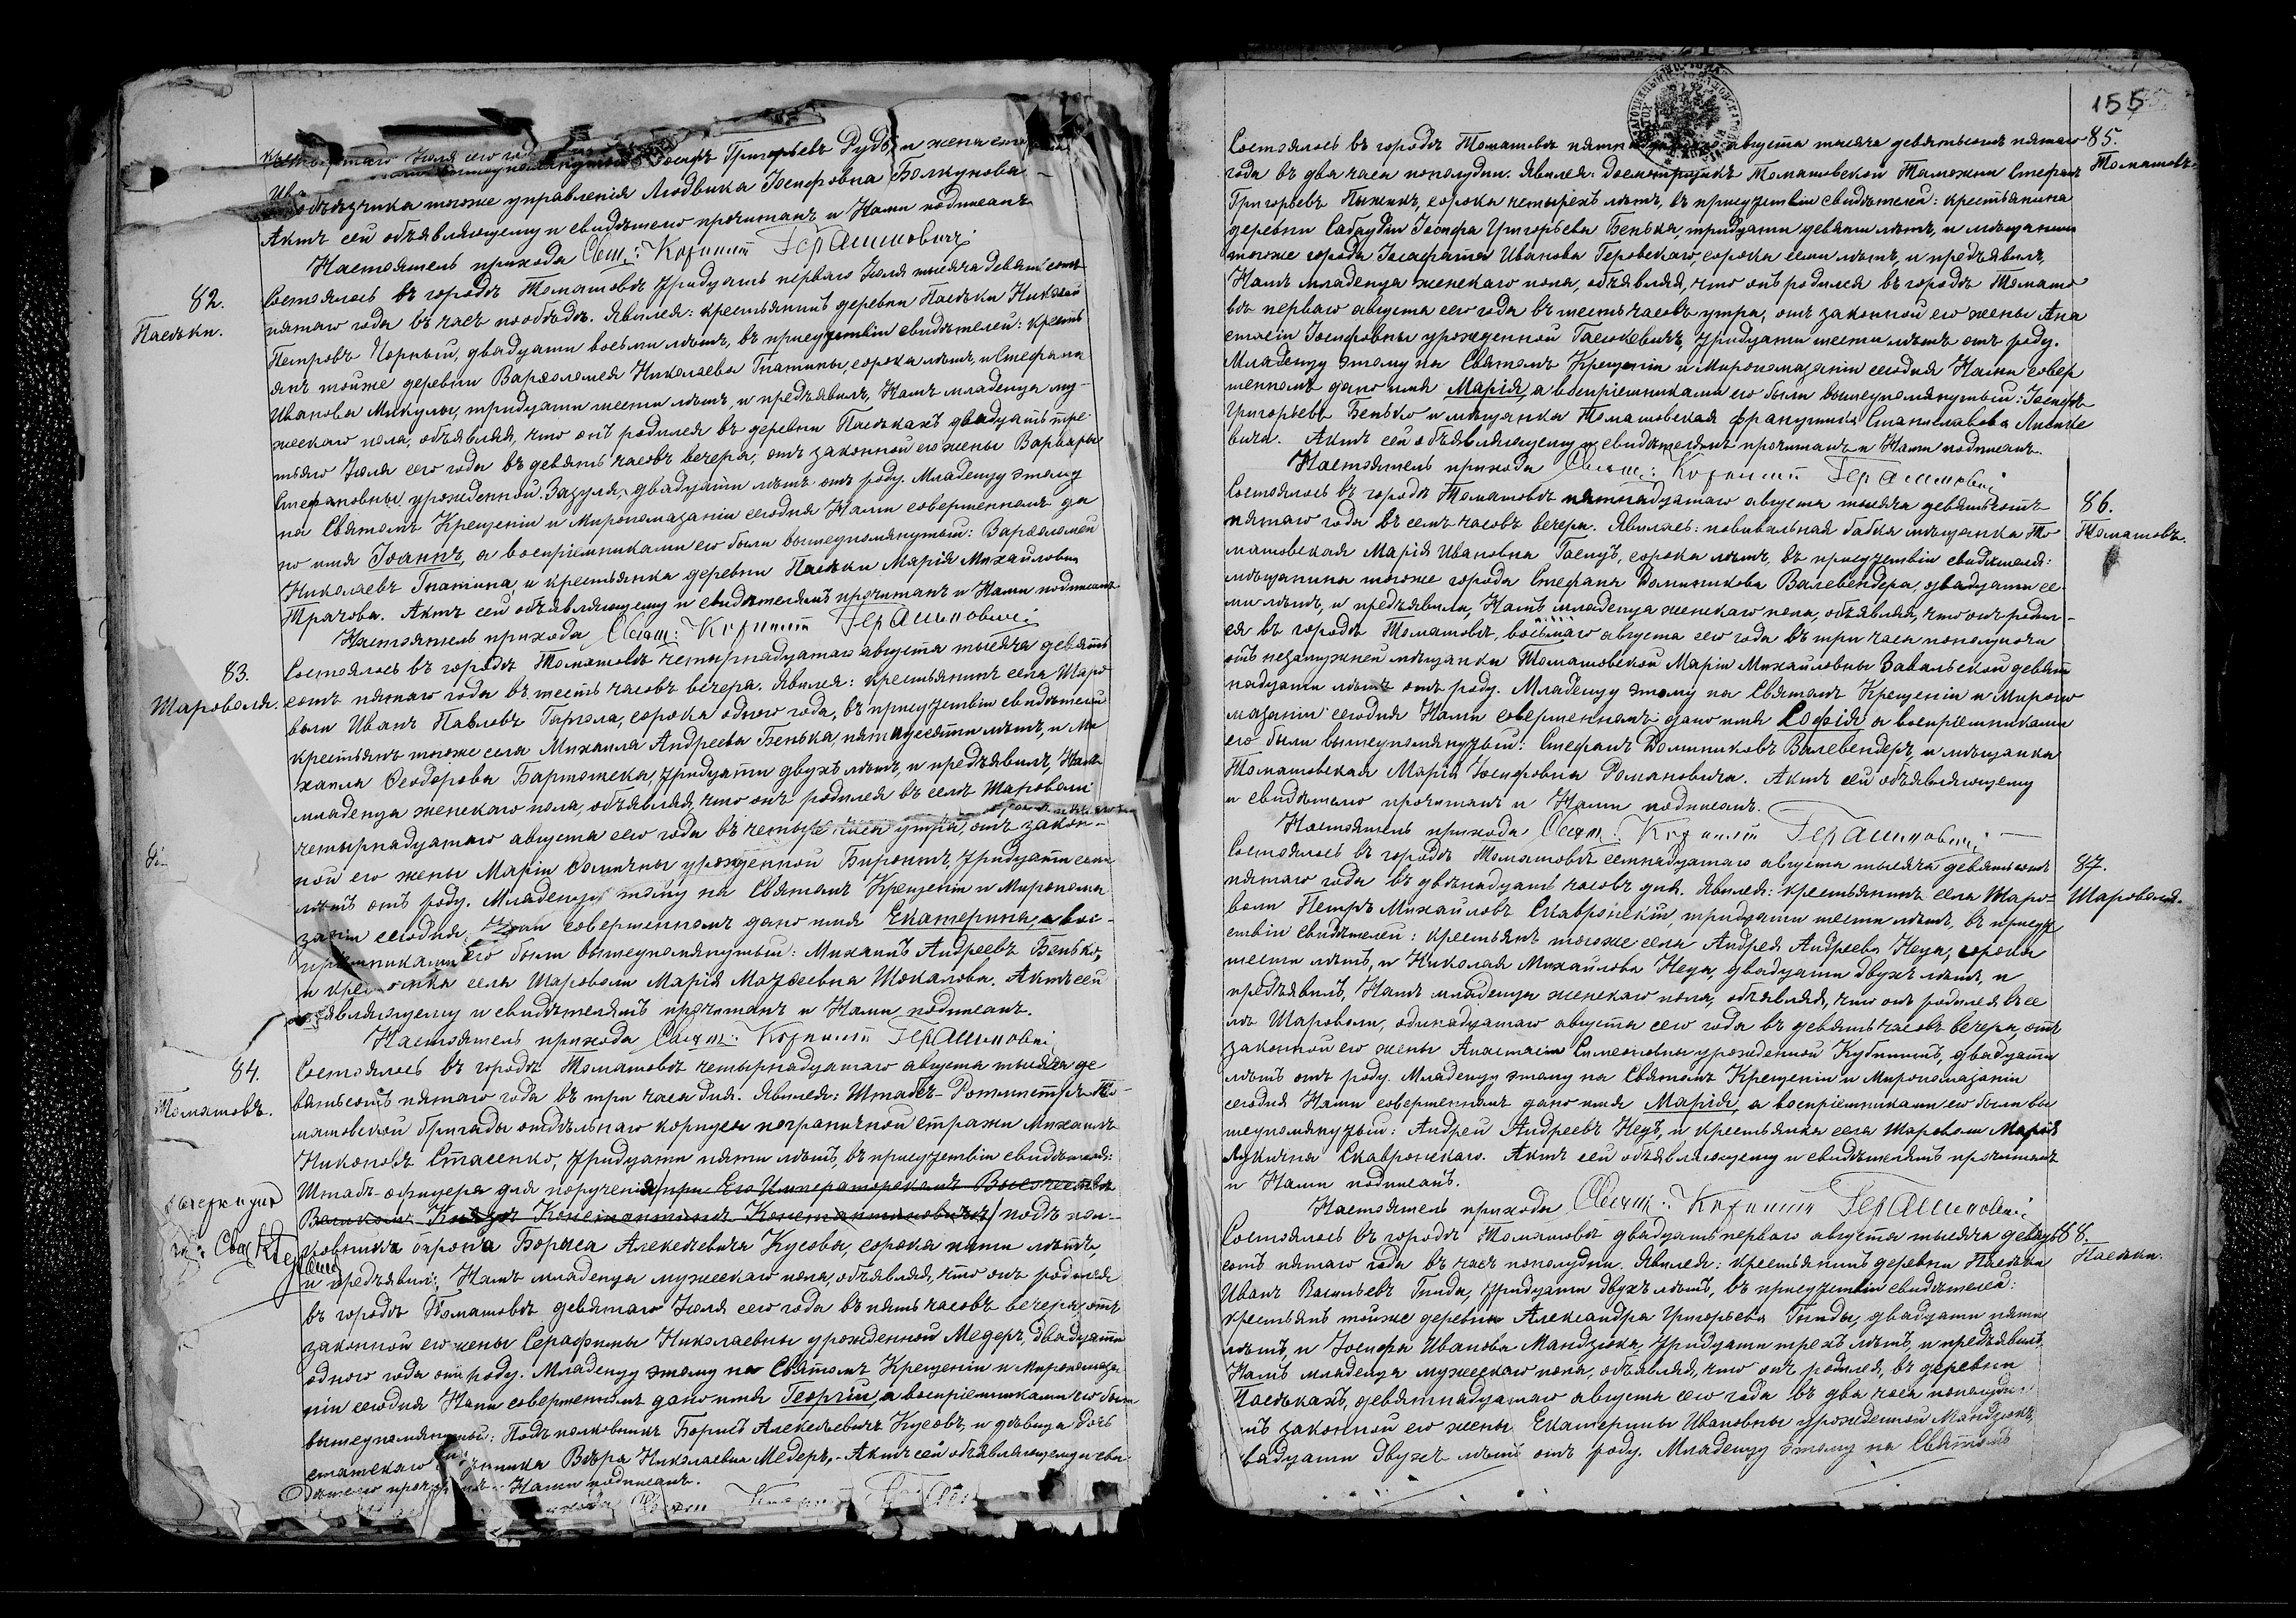 объѣздчика тогоже управленія Людвика Іосифовна Болкунова
Актъ сей объявляющему и свидѣтелю прочитанъ и Нами подписанъ
Настоятель прихода Свящ: Корнилій Герашимовичъ
82.
Пасѣки.
Состоялось въ городѣ Томашовѣ тридцать перваго Іюля тысяча девятьсотъ
пятаго года въ часъ пообѣдѣ. Явился: крестьянинъ деревни Пасѣки Николай
Петровъ Чорный, двадцати восьми лѣтъ, въ присутствіи свидѣтелей: кресть
янъ тойже деревни Варѳоломея Николаева Гнатины, сорока лѣтъ, и Стефана
Иванова Микулы, тридцати шести лѣтъ, и предъявилъ, Намъ младенца му-
жескаго пола, объявляя, что онъ родился въ деревни Пасѣкахъ двадцать тре
тьяго Іюля сего года въ девять часовъ вечера, отъ законной его жены Варвары
Стефановны урожденной Зазуля, двадцати лѣтъ отъ роду. Младенцу этому
на Святомъ Крещеніи и Миропомазаніи сегодня Нами совершенномъ да
но имя Іоаннъ, а воспріемниками его были вышеупомянутый: Варѳоломей
Николаевъ Гнатина, и крестьянка деревни Пасѣки Марія Михайловна
Трачова. Актъ сей объявляющему и свидѣтелямъ прочитанъ и Нами подписанъ
Настоятель прихода Свящ: Корнилій Герашимовичъ
83.
Шароволя.
Состоялось въ городѣ Томашовѣ четырнадцатаго августа тысяча девять
сотъ пятаго года въ шесть часовъ вечера. Явился: крестьянинъ села Шаро
воли Иванъ Павловъ Гаргола, сорока одного года, въ присутствіи свидѣтелей
крестьянъ тогоже села Михаила Андреева Бенька, пятидесяти лѣтъ, и Ми
хаила Ѳеодорова Бартошека, тридцати двухъ лѣтъ, и предъявилъ, Намъ
младенца женскаго пола, объявляя, что онъ родился въ селѣ Шароволи
четырнадцатаго августа сего года въ четыре часа утра, отъ закон-
ной его жены Маріи урожденной Биронтъ, тридцати семи
лѣтъ отъ роду. Младенцу этому на Святомъ Крещеніи и Миропома
заніи сегодня, Нами совершенномъ дано имя Екатерина, а вос-
пріемниками его были вышеупомянутый: Михаилъ Андреевъ Бенько,
и села Шароволи Марія Матѳеевна Шокалова. Актъ сей
объявляющему и свидѣтелямъ прочитанъ и Нами подписанъ.
Настоятель прихода Свящ: Корнилій Герашимовичъ
84.
Томашовъ.
Состоялось въ городѣ Томашовѣ четырнадцатаго августа тысяча де
вятьсотъ пятаго года въ три часа дня. Явился: Штабъ-Ротмистръ То
машовской бригады отдѣльнаго корпуса пограничной стражи Михаилъ
Никоновъ Стасенко, тридцати пяти лѣтъ, въ присутствіи свидѣтеля:
Штабъ-офицера для порученій при Его Императорскомъ Высочествѣ
Великомъ Князѣ Константинѣ Константиновичѣ подъ пол-
ковника барона Бориса Алексѣевича Кусова, сорока пяти лѣтъ,
и предъявилъ, Намъ младенца мужескаго пола, объявляя, что онъ родился
въ городѣ Томашовѣ девятаго Іюля сего года въ пять часовъ вечера, отъ
законной его жены Серафимы Николаевны урожденной Медеръ, двадцати
одного года отъ роду. Младенцу этому на Святомъ Крещеніи и миропомаза
ніи сегодня Нами совершенномъ дано имя Георгій, а воспріемниками его были
вышеупомянутый: Подъ полковникъ Борисъ Алексѣевичъ Кусовъ, и дѣвица Дочь
статскаго Вѣра Николаевна Медеръ. Актъ сей объявляющему и сви
дѣтелю Нами подписанъ.
155
85.
Томашовъ.
Состоялось въ городѣ Томашовѣ августа тысяча девятьсотъ пятаго
года въ два часа пополудни. Явился: Досмотрщикъ Томашовской Таможни Стефанъ
Григорьевъ Пыжикъ, сорока четырехъ лѣтъ, въ присутствіи свидѣтелей: крестьянина
деревни Сабаудіи Іосифа Григорьева Бенька, тридцати девяти лѣтъ, и мѣщанина
тогоже города Іосафата Иванова Геровскаго, сорока семи лѣтъ, и предъявилъ,
Намъ младенца женскаго пола, объявляя, что онъ родился въ городѣ Томашо
вѣ перваго августа сего года въ шесть часовъ утра, отъ законной его жены Ана
стасіи Іосифовны урожденной Гаськевичъ, тридцати шести лѣтъ отъ роду.
Младенцу этому на Святомъ Крещеніи и Миропомазаніи сегодня Нами совер
шенномъ дано имя Марія, а воспріемниками его были вышеупомянутый: Іосифъ
Григорьевъ Бенько и мѣщанка Томашовская Францишка Станиславова
Актъ сей объявляющему и свидѣтелямъ прочитанъ и Нами подписанъ.
Настоятель прихода Свящ: Корнилій Герашимовичъ
86.
Томашовъ.
Состоялось въ городѣ Томашовѣ пятнадцатаго августа тысяча девятьсотъ
пятаго года въ семь часовъ вечера. Явилась: повивальная бабка мѣщанка То
машовская Марія Ивановна Гасуцъ, сорока лѣтъ, въ присутствіи свидѣтеля:
мѣщанина тогоже города Стефана Доминикова Валевендера, двадцати се
ми лѣтъ, и предъявила, Намъ младенца женскаго пола, объявляя, что онъ родил-
ся въ городѣ Томашовѣ, восьмаго августа сего года въ три часа пополуночи
отъ незамужней мѣщанки Томашовской Маріи Михайловны Завальской девят
надцати лѣтъ отъ роду. Младенцу этому на Святомъ Крещеніи и Миропо
мазаніи сегодня Нами совершенномъ дано имя Софія а воспріемниками
его были вышеупомянутый: Стефанъ Доминиковъ Валевендеръ, и мѣщанка
Томашовская Марія Іосифовна Романовича. Актъ сей объявляющему
и свидѣтелю прочитанъ и Нами подписанъ.
Настоятель прихода Свящ: Корнилій Герашимовичъ
87.
Шароволя.
Состоялось въ городѣ Томашовѣ семнадцатаго августа тысяча девятьсотъ
пятаго года въ двѣнадцать часовъ дня. Явился: крестьянинъ села Шаро-
воли Петръ Михайловъ Скавронскій, тридцати шести лѣтъ, въ присут
ствіи свидѣтелей: крестьянъ тогоже села Андрея Андреева Неца, сорока
шести лѣтъ, и Николая Михайлова Неца, двадцати двухъ лѣтъ, и
предъявилъ, Намъ младенца женскаго пола, объявляя, что онъ родился въ се
лѣ Шароволи, одинадцатаго августа сего года въ девять часовъ вечера, отъ
законной его жены Анастасіи Симеоновны урожденной двадцати
лѣтъ отъ роду. Младенцу этому на Святомъ Крещеніи и Миропомазаніи
сегодня Нами совершенномъ дано имя Марія, а воспріемниками его были вы
шеупомянутый: Андрей Андреевъ Нецъ, и крестьянка села Шароволи Марія
Лукична Скавронскаго. Актъ сей объявляющему и свидѣтелямъ прочитанъ
и Нами подписанъ.
Настоятель прихода Свящ: Корнилій Герашимовичъ
88.
Пасѣки.
Состоялось въ городѣ Томашовѣ двадцать перваго августа тысяча девять
сотъ пятаго года въ часъ пополудни. Явился: крестьянинъ деревни Пасѣки
Иванъ Васильевъ Гнида, тридцати двухъ лѣтъ, въ присутствіи свидѣтелей:
крестьянъ тойже деревни Александра Григорьева Гниды, двадцати пяти
лѣтъ, и Іосифа Иванова Мандзюка, тридцати трехъ лѣтъ, и предъявилъ,
Намъ младенца мужескаго пола, объявляя, что онъ родился, въ деревни
Пасѣкахъ, девятнадцатаго августа сего года въ два часа пополудни
отъ законной его жены Екатерины Ивановны урожденной Мандзюкъ,
двадцати двухъ лѣтъ отъ роду. Младенцу этому на Святомъ